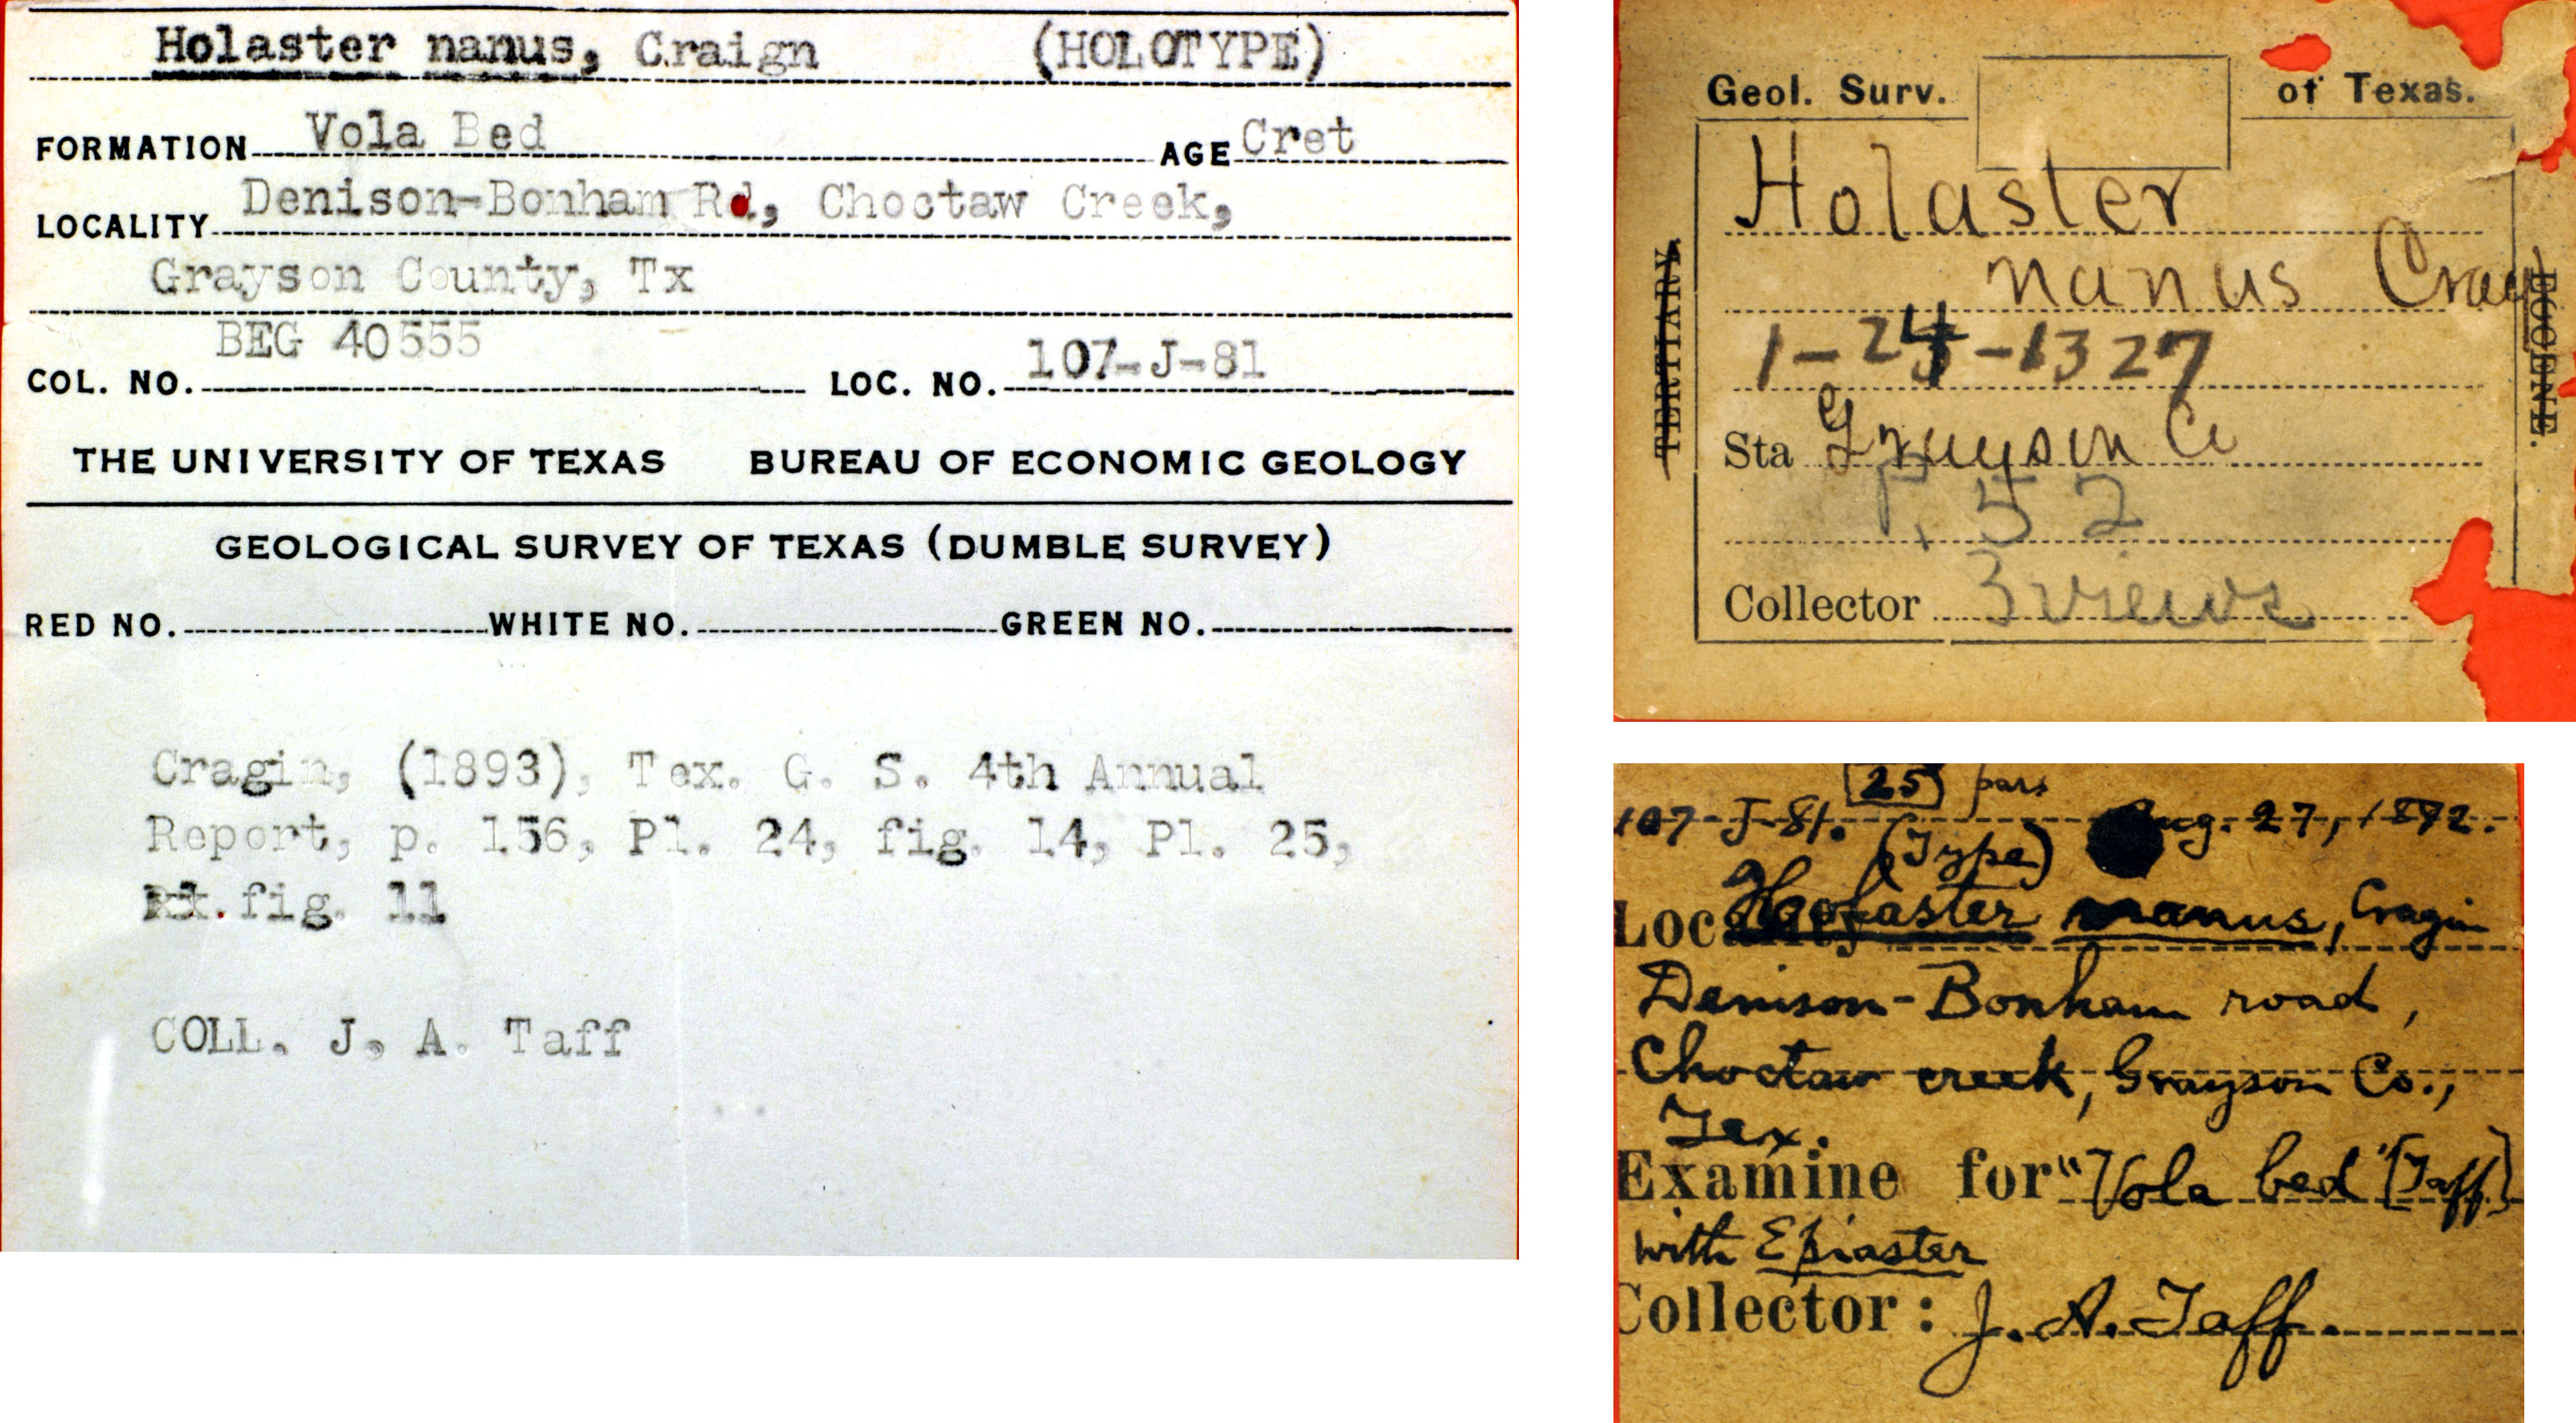 Holaster nanus, Craign (HOLOTYPE)
FORMATION Vola Bed AGE Cret
LOCALITY Denison-Bonham Rd, Choctaw Creek,
Grayson County, Tx
BEG 40555
COL. NO. LOC. NO. 107-J-81
THE UNIVERSITY OF TEXAS BUREAU OF ECONOMIC GEOLOGY
GEOLOGICAL SURVEY OF TEXAS (DUMBLE SURVEY)
RED NO. WHITE NO. GREEN NO.
Cragin, (1893), Tex. G. S. 4th Annual
Report, p. 156, Pl. 24, fig. 14, Pl. 25,
fig. 11
COLL. J. A. Taff
Geol. Surv. of Texas.
TERTIARY.
EOCENE.
Holaster
nanus Crag
1-24-1327
Sta Grayson Co
P. 52
Collector 3 views
25 pars
107-J-81. Aug. 27, 1892.
(Type)
Locality Holaster nanus, Cragin
Denison-Bonham road,
Choctaw creek, Grayson Co.,
Tex.
Examine for "Vola bed" [Taff]
with Epiaster
Collector: J. A. Taff.